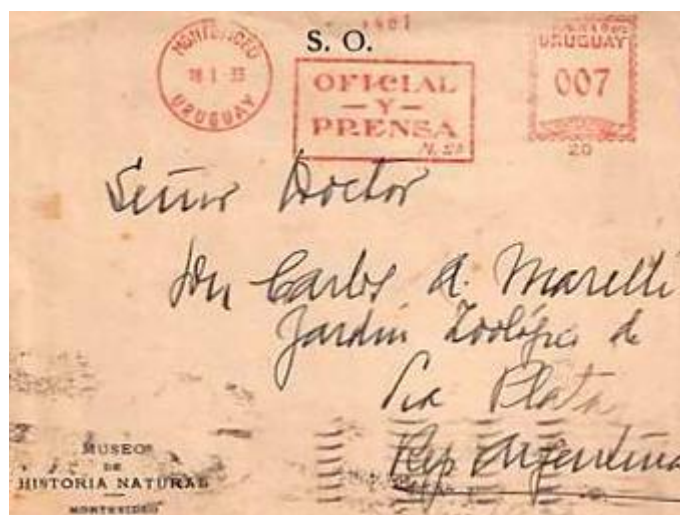 MONTEVIDEO
18 1 33
URUGUAY
S. O.
OFICIAL
— Y —
PRENSA
URUGUAY
007
20
Señor Doctor
Don Carlos A. Marelli
Jardin Zoológico de
La Plata
Rep Argentina
MUSEO
DE
HISTORIA NATURAL
MONTEVIDEO